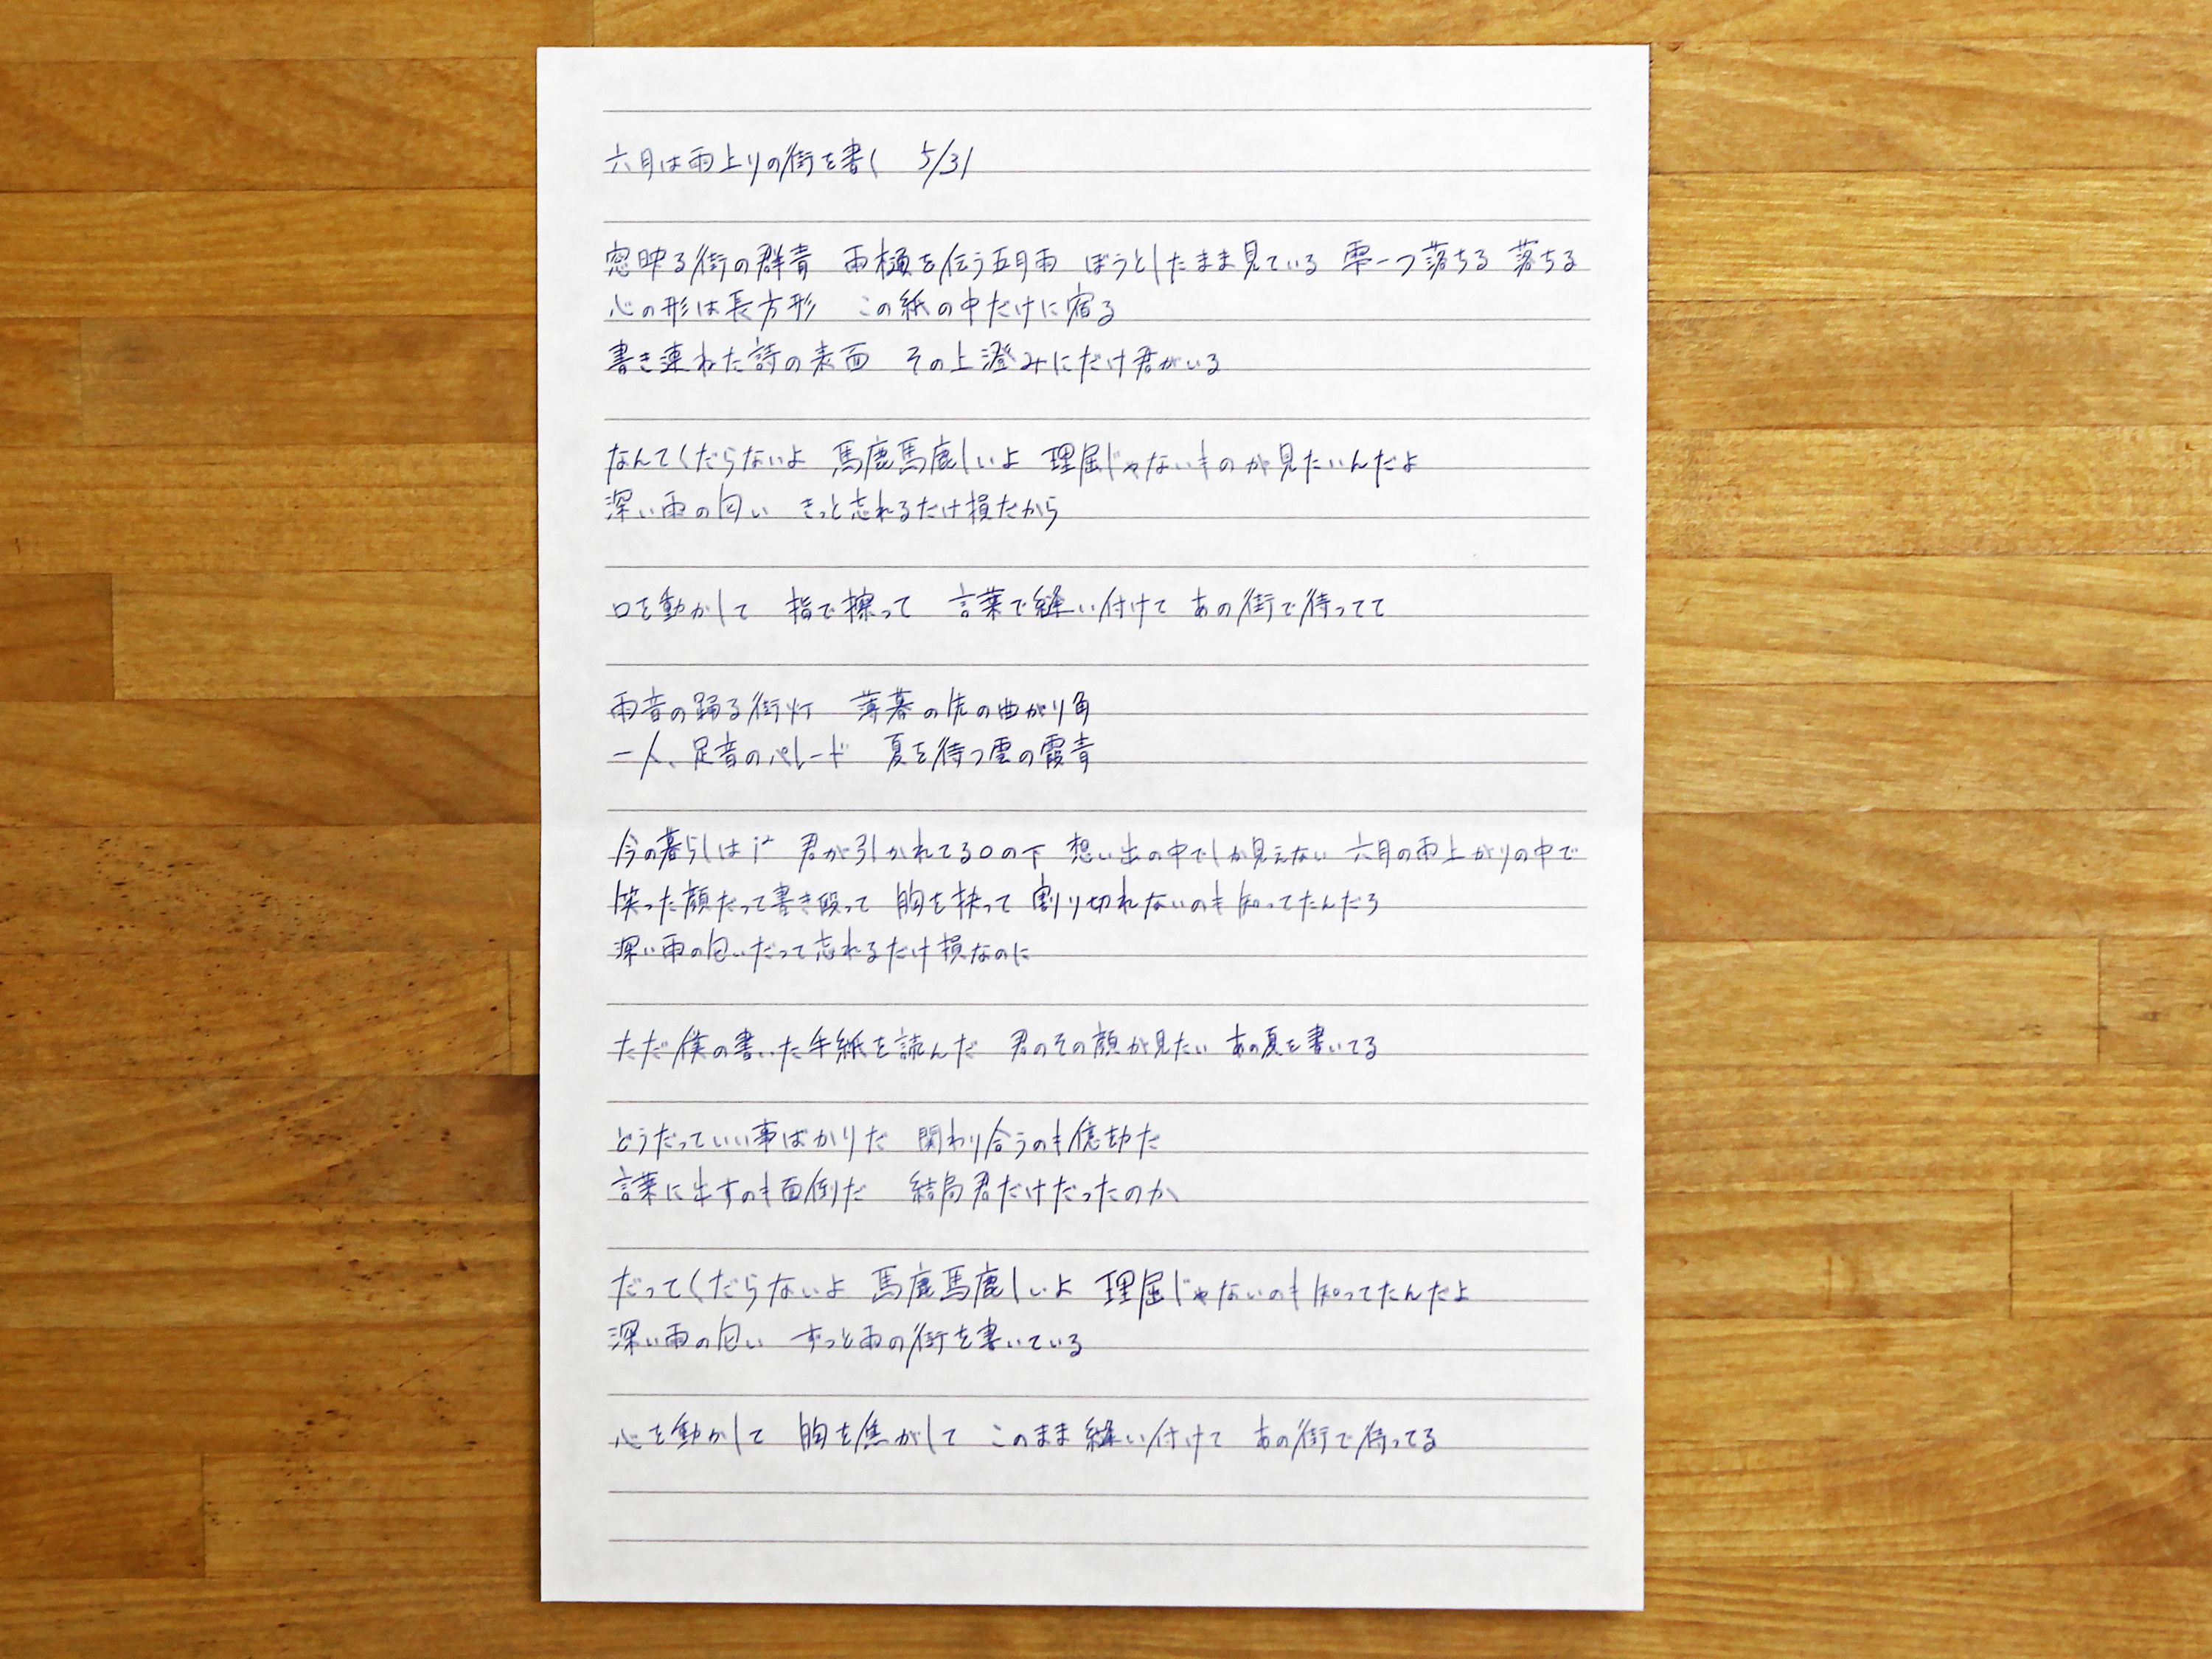 六月は雨上りの街を書く　5/31
窓映る街の群青　雨樋を伝う五月雨　ぼうとしたまま見ている　雫一つ落ちる　落ちる
心の形は長方形　この紙の中だけに宿る
書き連ねた詩の表面　その上澄みにだけ君がいる
なんてくだらないよ　馬鹿馬鹿しいよ　理屈じゃないものが見たいんだよ
深い雨の匂い　きっと忘れるだけ損だから
口を動かして　指で擦って　言葉で縫い付けて　あの街で待ってて
雨音の踊る街灯　薄暮の先の曲がり角
一人、足音のパレード　夏を待つ雲の霞青
今の暮らしはi²　君が引かれてる0の下　想い出の中でしか見えない　六月の雨上がりの中で
笑った顔だって書き殴って　胸を抉って　割り切れないのも知ってたんだろ
深い雨の匂いだって忘れるだけ損なのに
ただ僕の書いた手紙を読んだ　君のその顔が見たい　あの夏を書いてる
どうだっていい事ばかりだ　関わり合うのも億劫だ
言葉に出すのも面倒だ　結局君だけだったのか
だってくだらないよ　馬鹿馬鹿しいよ　理屈じゃないのも知ってたんだよ
深い雨の匂い　ずっと雨の街を書いている
心を動かして　胸を焦がして　このまま縫い付けて　あの街で待ってる